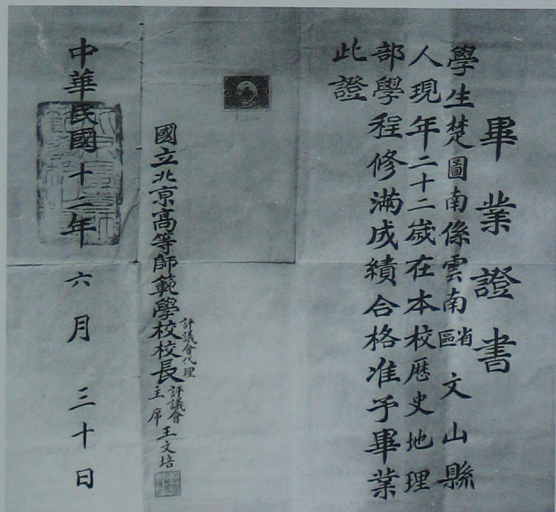 畢業證書
學生楚圖南係雲南省區文山縣
人現年二十二歲在本校歷史地理
部學程修滿成績合格准予畢業
此證
國立北京高等師範學校校長評議會代理
評議會主席王文培
中華民國十二年六月三十日